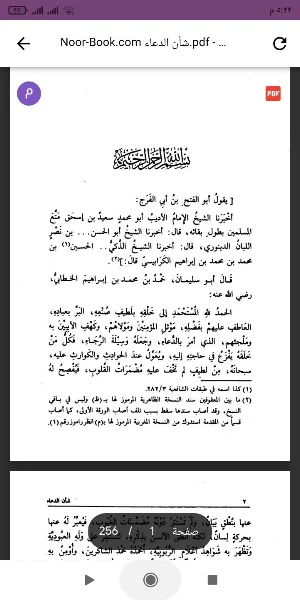 ٥:٢٢ م
Noor-Book.com شأن الدعاء.pdf - ...
م
PDF
بسم الله الرحمن الرحيم
[ يقول أبو الفتح بن أبي الفرج:
أخبرنا الشيخ الإمام الأديب أبو محمد سعيد بن إسحق متّع
المسلمين بطول بقائه، قال: أخبرنا الشيخ أبو الحسن... بن نصر
اللبان الدينوري، قال: أخبرنا الشيخ الذكيّ.. الحسين(١) بن
محمد بن محمد بن إبراهيم الكرابيسيّ قالَ:](٢).
قالَ أبو سليمانَ، حَمْدُ بنُ محمدِ بن إبراهيمَ الخطابيُّ،
رضي الله عنه:
الحمدُ للهِ المُسْتَحْمِدِ إلى خَلْقِهِ بلطيفِ صُنْعِهِ، البَرِّ بعبادِهِ،
العاطفِ عليهمْ بفَضْلِهِ، مَوْئلِ المؤمنينَ ومَوْلاهُمْ، وكَهْفِ الآيبينَ به
ومَلْجَئِهم، الذي أمرَ بالدُّعاءِ، وجعلَهُ وسيلةَ الرَّجاءِ، فكلٌّ مِنْ
خَلْقِهِ يَفْزَعُ في حاجتِهِ إليه، ويُعَوِّلُ عندَ الحوادثِ والكوارثِ عليه،
سبحانَهُ، مِنْ لطيفٍ لم تَخْفَ عليه مُضْمَرَاتُ القلوبِ، فيُفْصَحَ لهُ
(١) كذا اسمه في طبقات الشافعية ٢٨٢/٣
(٢) ما بين المعقوفين سند النسخة الظاهرية المرموز لها بـ(ظ) وليس في باقي
النسخ، وقد أصاب سندها سقط بسبب تلف أصاب الورقة الأولى، كما أصاب
قسماً من المقدمة استدرك من النسخة المغربية المرموز لها بـ(م) انظر راموز رقم (١).
٢
شأن الدعاء
عنها بنُطْقِ بيانٍ، ولم تَسْتَتِرْ دونَهُ مُضَمَّناتُ الغيوبِ، فيُعبَّرَ لهُ عنها
بحركةِ لسانٍ،
صفحة 1 / 256
وتَظْهَرَ به شواهدُ أعلامِ الرُّبوبيةِ، أحمدُهُ حَمْدَ الشاكرينَ، وأُومنُ بهِ